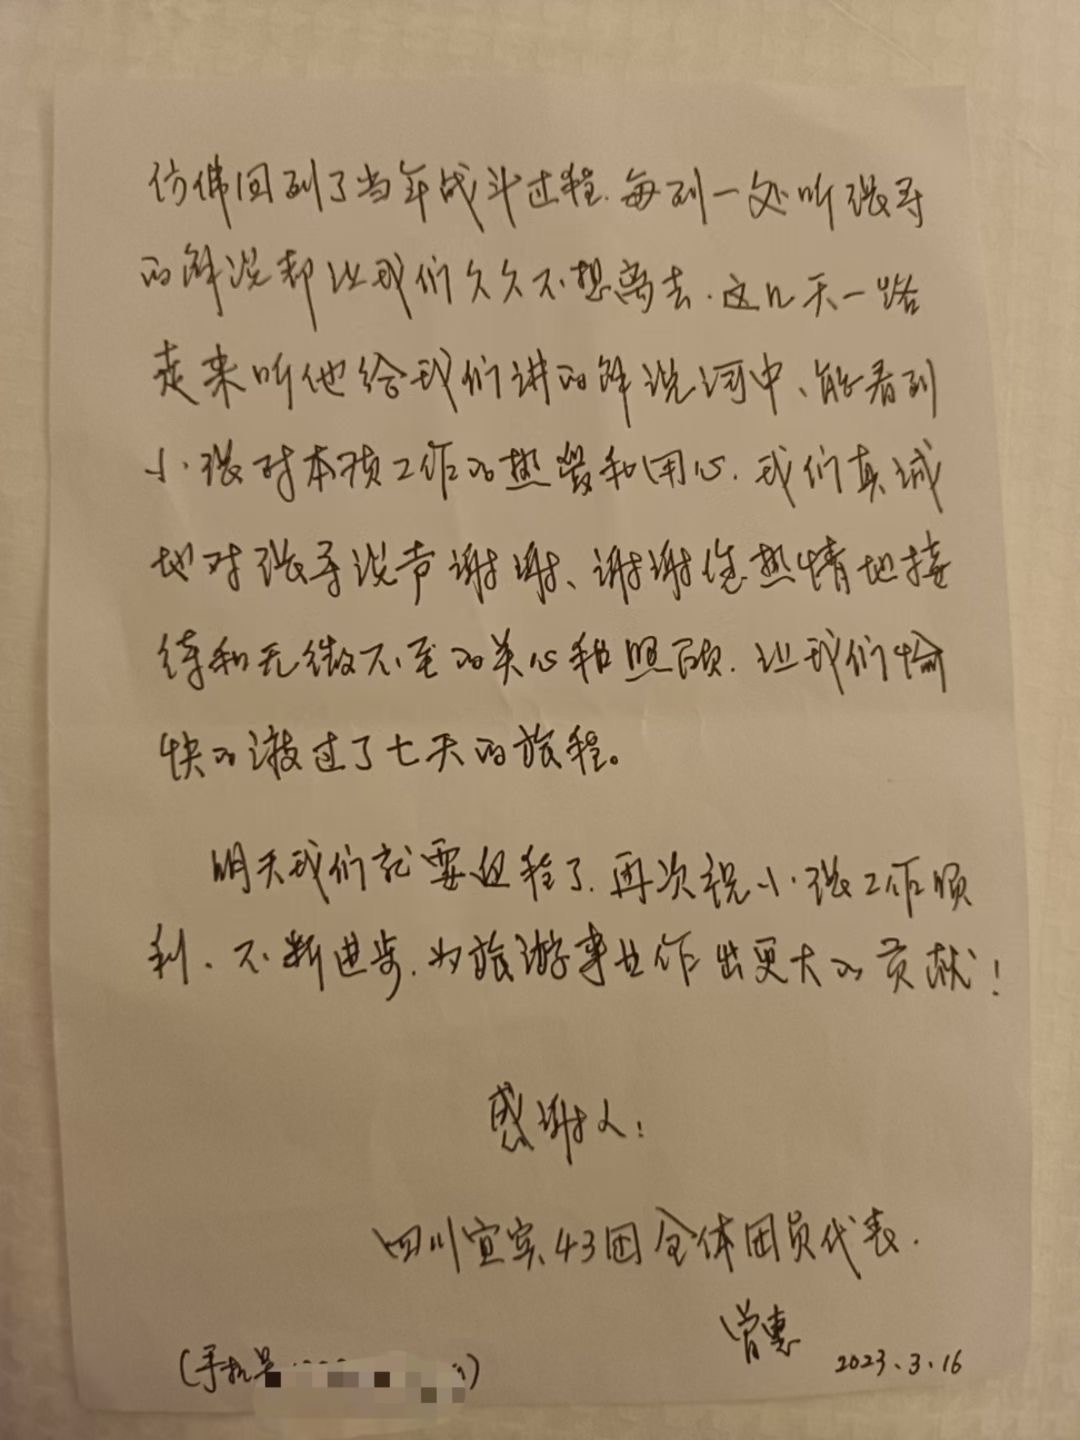 仿佛回到了当年战斗过程.每到一处听张导
的解说都让我们久久不想离去.这几天一路
走来听他给我们讲的解说词中、能看到
小张对本项工作的热爱和用心.我们真诚
地对张导说声谢谢、谢谢您热情地接
待和无微不至的关心和照顾.让我们愉
快的渡过了七天的旅程。
明天我们就要返程了.再次祝小张工作顺
利、不断进步.为旅游事业作出更大的贡献！
感谢人：
四川宜宾43团全体团员代表.
曾惠
(手机号)
2023.3.16